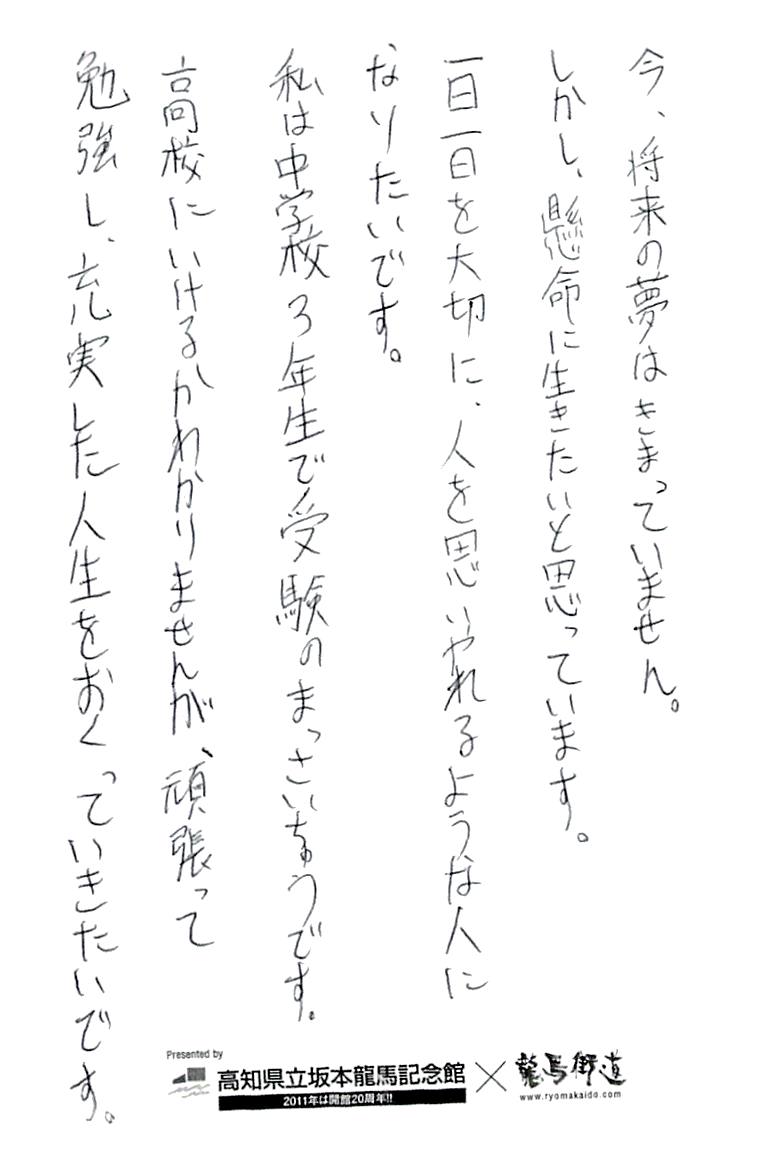 今、将来の夢はきまっていません。
しかし、懸命に生きたいと思っています。
一日一日を大切に、人を思いやれるような人に
なりたいです。
私は中学校3年生で受験のまっさいちゅうです。
高校にいけるかわかりませんが、頑張って
勉強し、充実した人生をおくっていきたいです。
Presented by
高知県立坂本龍馬記念館
2011年は開館20周年!!
×
龍馬街道
www.ryomakaido.com